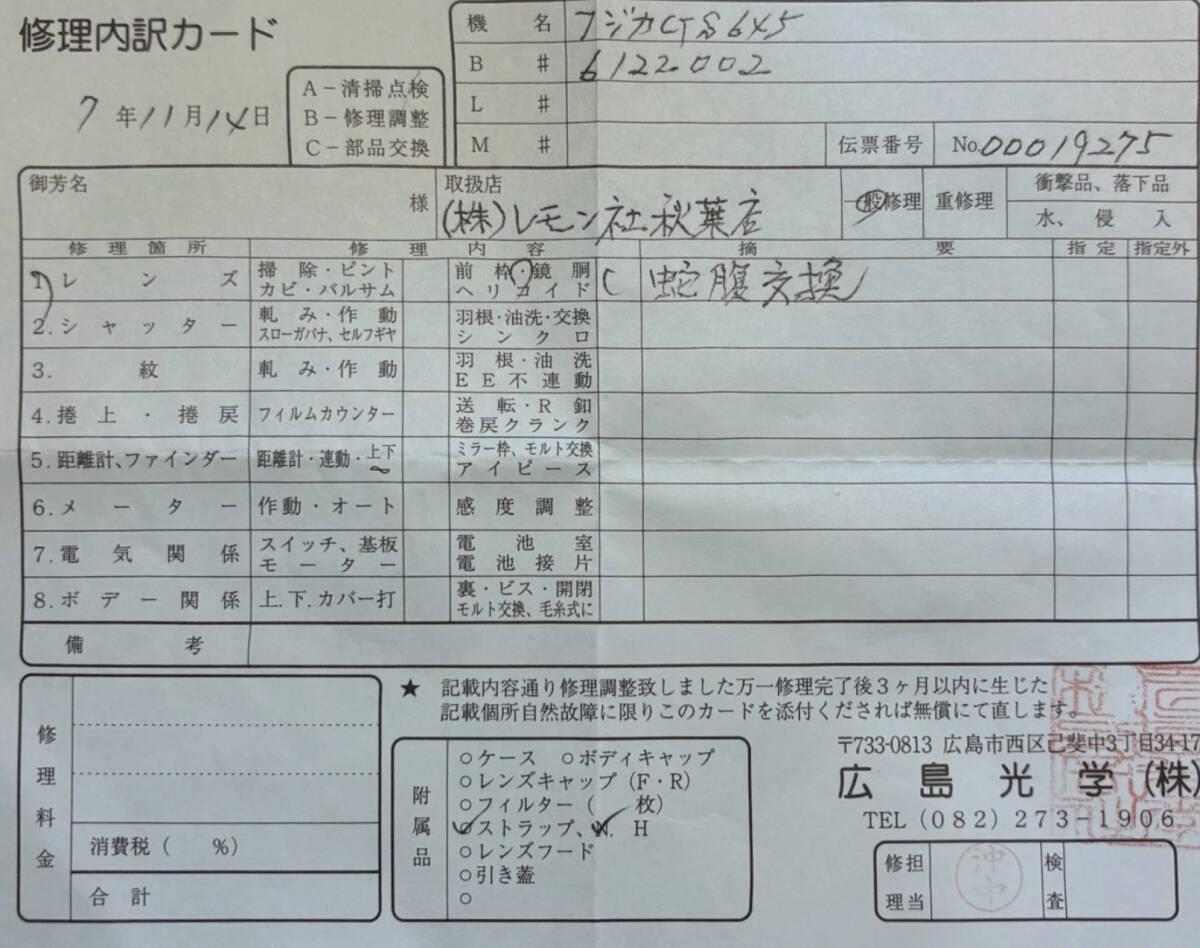 修理内訳カード
7年11月14日
A－清掃点検
B－修理調整
C－部品交換
機名 フジカGS645
B # 6122002
L #
M # 伝票番号 No.00019275
御芳名 様
取扱店 (株)レモン社秋葉店
一般修理 重修理 衝撃品、落下品
水、侵入
修理箇所 修理内容 摘要 指定 指定外
1.レンズ 掃除・ピント 前枠・鏡胴 C 蛇腹交換
カビ・バルサム ヘリコイド
2.シャッター 軋み・作動 羽根・油洗・交換
スローガバナ、セルフギヤ シンクロ
3.紋 軋み・作動 羽根・油洗
EE不連動
4.捲上・捲戻 フィルムカウンター 送転・R釦
巻戻クランク
5.距離計、ファインダー 距離計・連動・上下∞ ミラー枠、モルト交換
アイピース
6.メーター 作動・オート 感度調整
7.電気関係 スイッチ、基板 電池室
モーター 電池接片
8.ボデー関係 上.下.カバー打 裏・ビス・開閉
モルト交換、毛糸式に
備考
修理料金
消費税(　%)
合計
★ 記載内容通り修理調整致しました万一修理完了後3ヶ月以内に生じた
記載個所自然故障に限りこのカードを添付くだされば無償にて直します。
附属品
○ケース ○ボディキャップ
○レンズキャップ(F・R)
○フィルター(　枚)
○ストラップ、N. H
○レンズフード
○引き蓋
○
〒733-0813 広島市西区己斐中3丁目34-17
広島光学(株)
TEL(082)273-1906
修理担当 沖中 検査